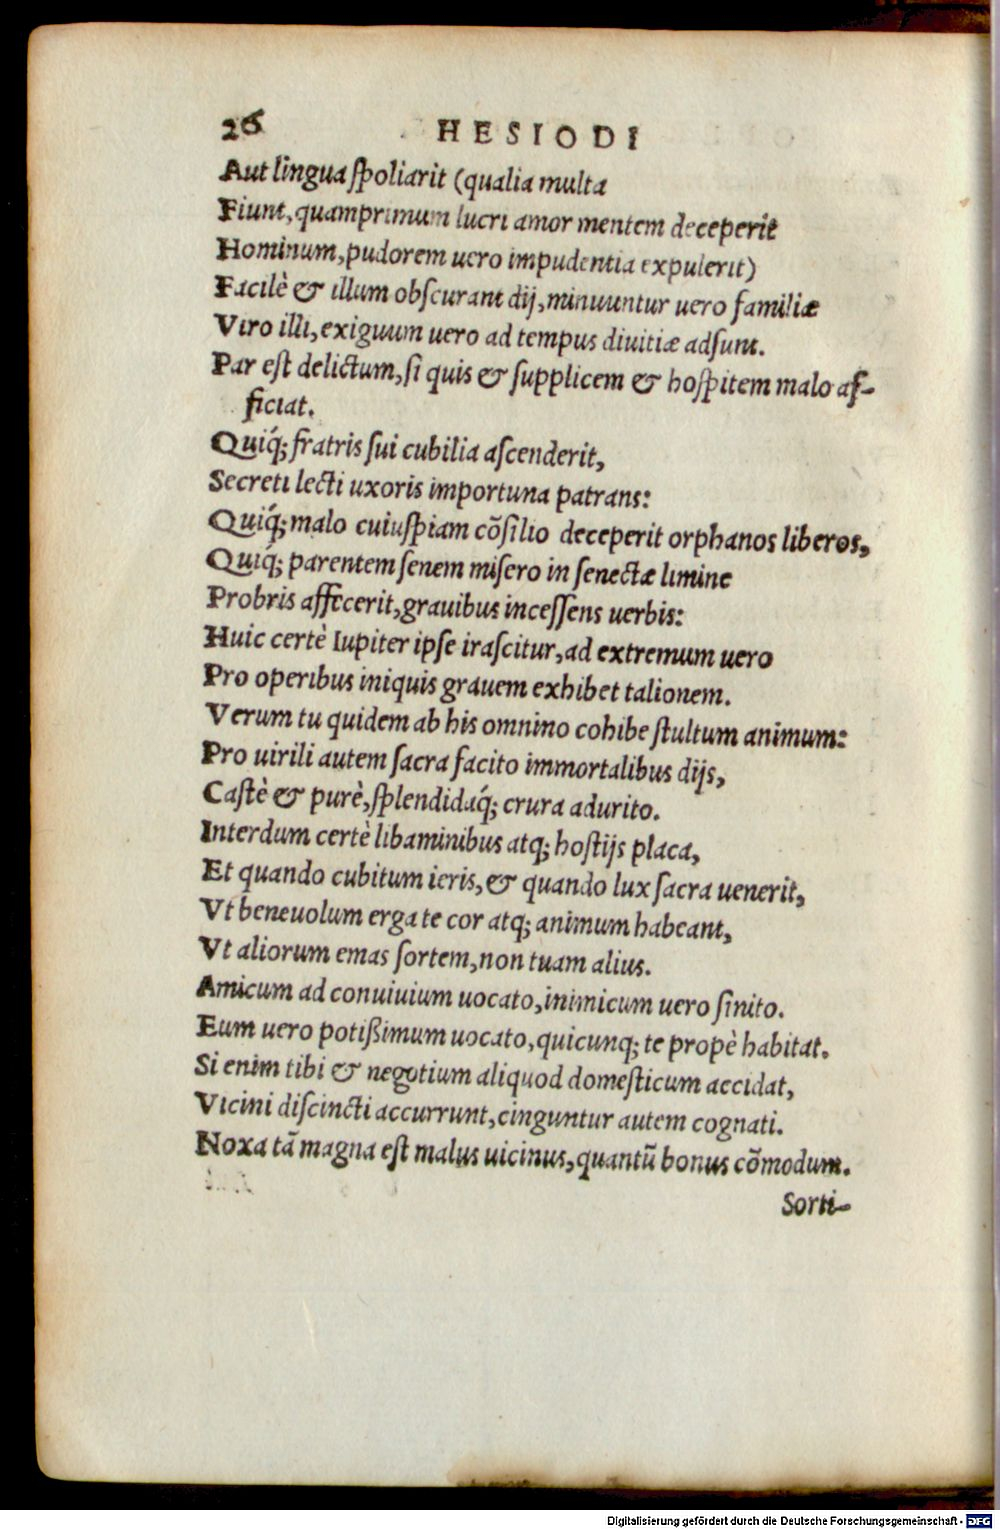 26 HESIODI
Aut lingua ſpoliarit (qualia multa
Fiunt, quamprimum lucri amor mentem deceperit
Hominum, pudorem uero impudentia expulerit)
Facilè & illum obſcurant dij, minuuntur uero familiæ
Viro illi, exiguum uero ad tempus diuitiæ adſunt.
Par eſt delictum, ſi quis & ſupplicem & hoſpitem malo af-
ficiat.
Quiq́; fratris ſui cubilia aſcenderit,
Secreti lecti uxoris importuna patrans:
Quiq́; malo cuiuſpiam cõſilio deceperit orphanos liberos,
Quiq́; parentem ſenem miſero in ſenectæ limine
Probris affecerit, grauibus inceſſens uerbis:
Huic certè Iupiter ipſe iraſcitur, ad extremum uero
Pro operibus iniquis grauem exhibet talionem.
Verum tu quidem ab his omnino cohibe ſtultum animum:
Pro uirili autem ſacra facito immortalibus dijs,
Caſtè & purè, ſplendidaq́; crura adurito.
Interdum certè libaminibus atq; hoſtijs placa,
Et quando cubitum ieris, & quando lux ſacra uenerit,
Vt beneuolum erga te cor atq; animum habeant,
Vt aliorum emas ſortem, non tuam alius.
Amicum ad conuiuium uocato, inimicum uero ſinito.
Eum uero potißimum uocato, quicunq; te propè habitat.
Si enim tibi & negotium aliquod domeſticum accidat,
Vicini diſcincti accurrunt, cinguntur autem cognati.
Noxa tã magna eſt malus uicinus, quantũ bonus cõmodum.
Sorti-
Digitalisierung gefördert durch die Deutsche Forschungsgemeinschaft - DFG